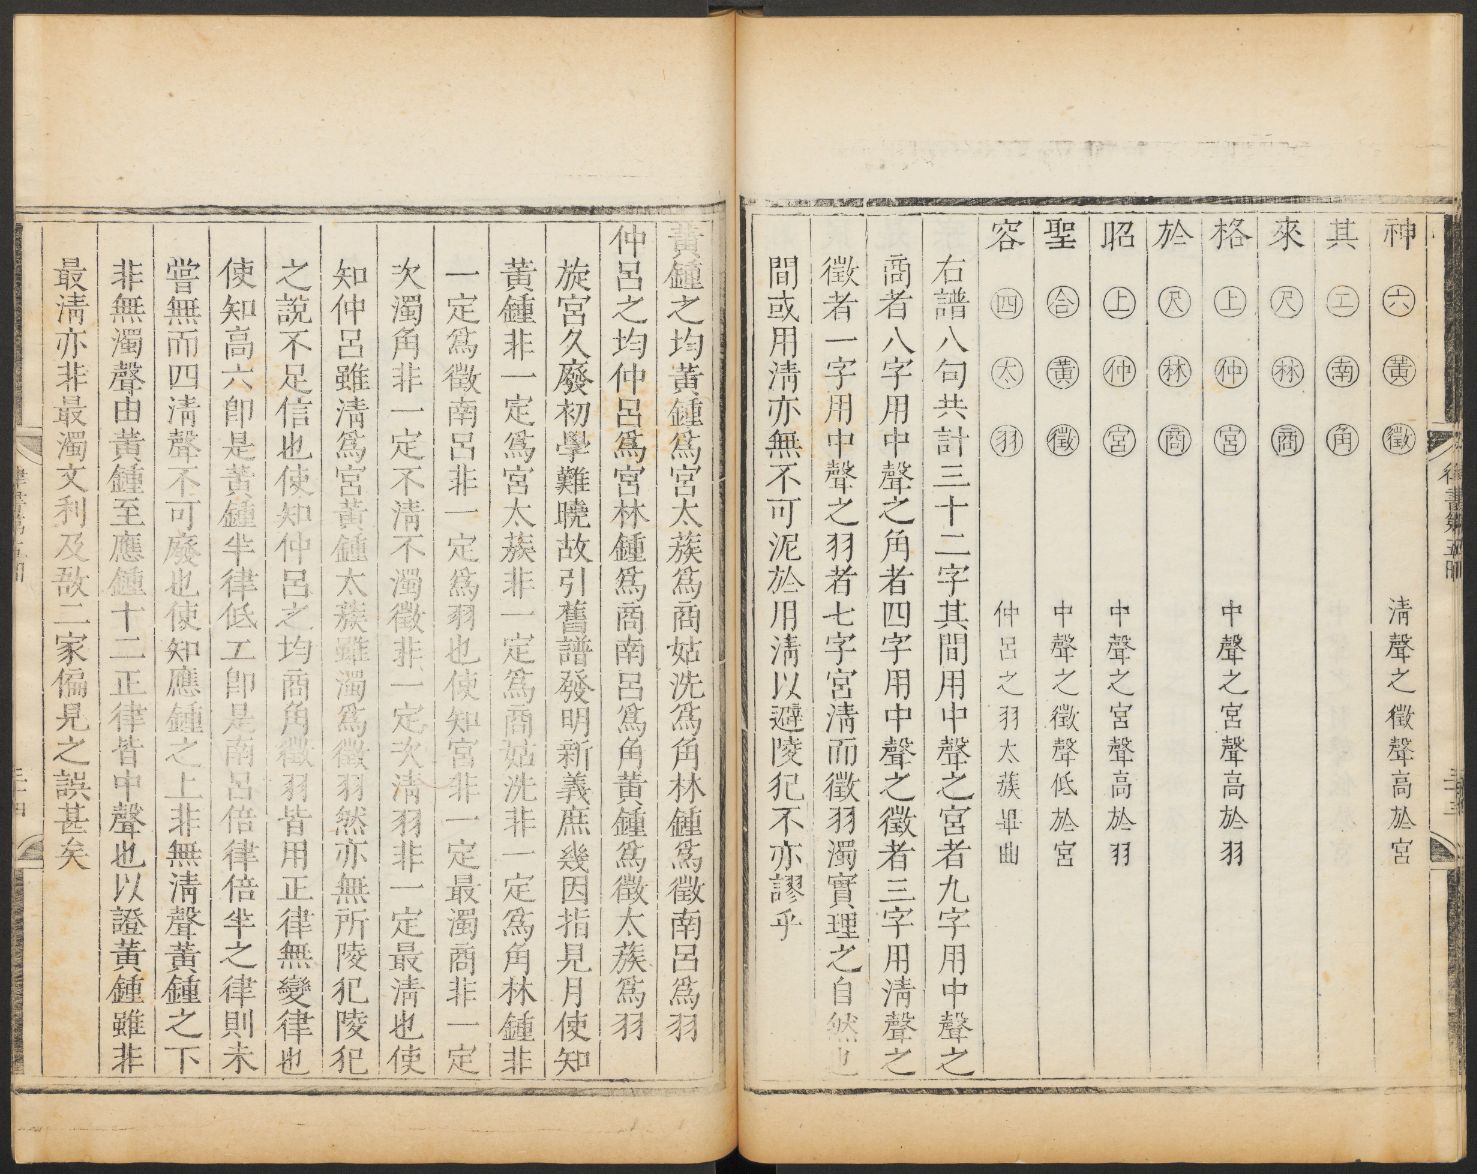 神 六 黃 徵 清聲之徵聲高於宮
其 工 南 角
來 尺 林 商
格 上 仲 宮 中聲之宮聲高於羽
於 尺 林 商
昭 上 仲 宮 中聲之宮聲高於羽
聖 合 黃 徵 中聲之徵聲低於宮
容 四 太 羽 仲呂之羽太蔟畢曲
右譜八句共計三十二字其間用中聲之宮者九字用中聲之
商者八字用中聲之角者四字用中聲之徵者三字用清聲之
徵者一字用中聲之羽者七字宮清而徵羽濁實理之自然也
間或用清亦無不可泥於用清以避陵犯不亦謬乎
黃鍾之均黃鍾爲宮太蔟爲商姑洗爲角林鍾爲徵南呂爲羽
仲呂之均仲呂爲宮林鍾爲商南呂爲角黃鍾爲徵太蔟爲羽
旋宮久廢初學難曉故引舊譜發明新義庶幾因指見月使知
黃鍾非一定爲宮太蔟非一定爲商姑洗非一定爲角林鍾非
一定爲徵南呂非一定爲羽也使知宮非一定最濁商非一定
次濁角非一定不清不濁徵非一定次清羽非一定最清也使
知仲呂雖清爲宮黃鍾太蔟雖濁爲徵羽然亦無所陵犯陵犯
之說不足信也使知仲呂之均商角徵羽皆用正律無變律也
使知高六卽是黃鍾半律低工卽是南呂倍律倍半之律則未
嘗無而四清聲不可廢也使知應鍾之上非無清聲黃鍾之下
非無濁聲由黃鍾至應鍾十二正律皆中聲也以證黃鍾雖非
最清亦非最濁文利及敔二家偏見之誤甚矣